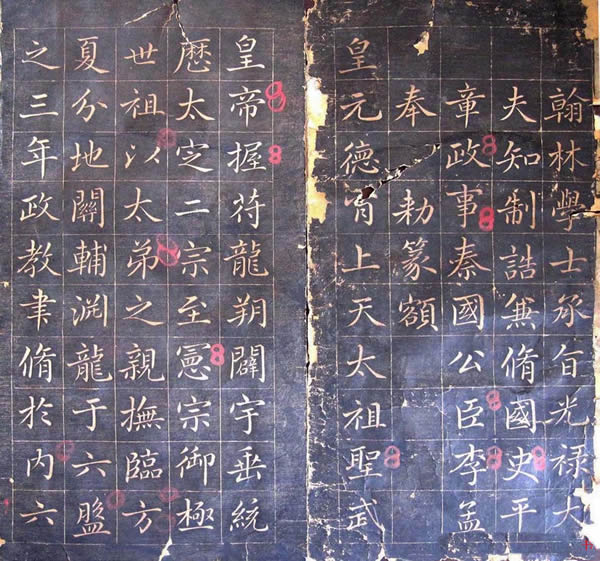 翰林學士承旨光祿大
夫知制誥兼脩國史平
章政事秦國公臣李孟
奉 勅篆額
皇元德胄上天太祖聖武
皇帝握符龍朔闢宇垂統
厯太定二宗至憲宗御極
世祖以太弟之親撫臨方
夏分地關輔淵龍于六盤
之三年政教聿脩於内六